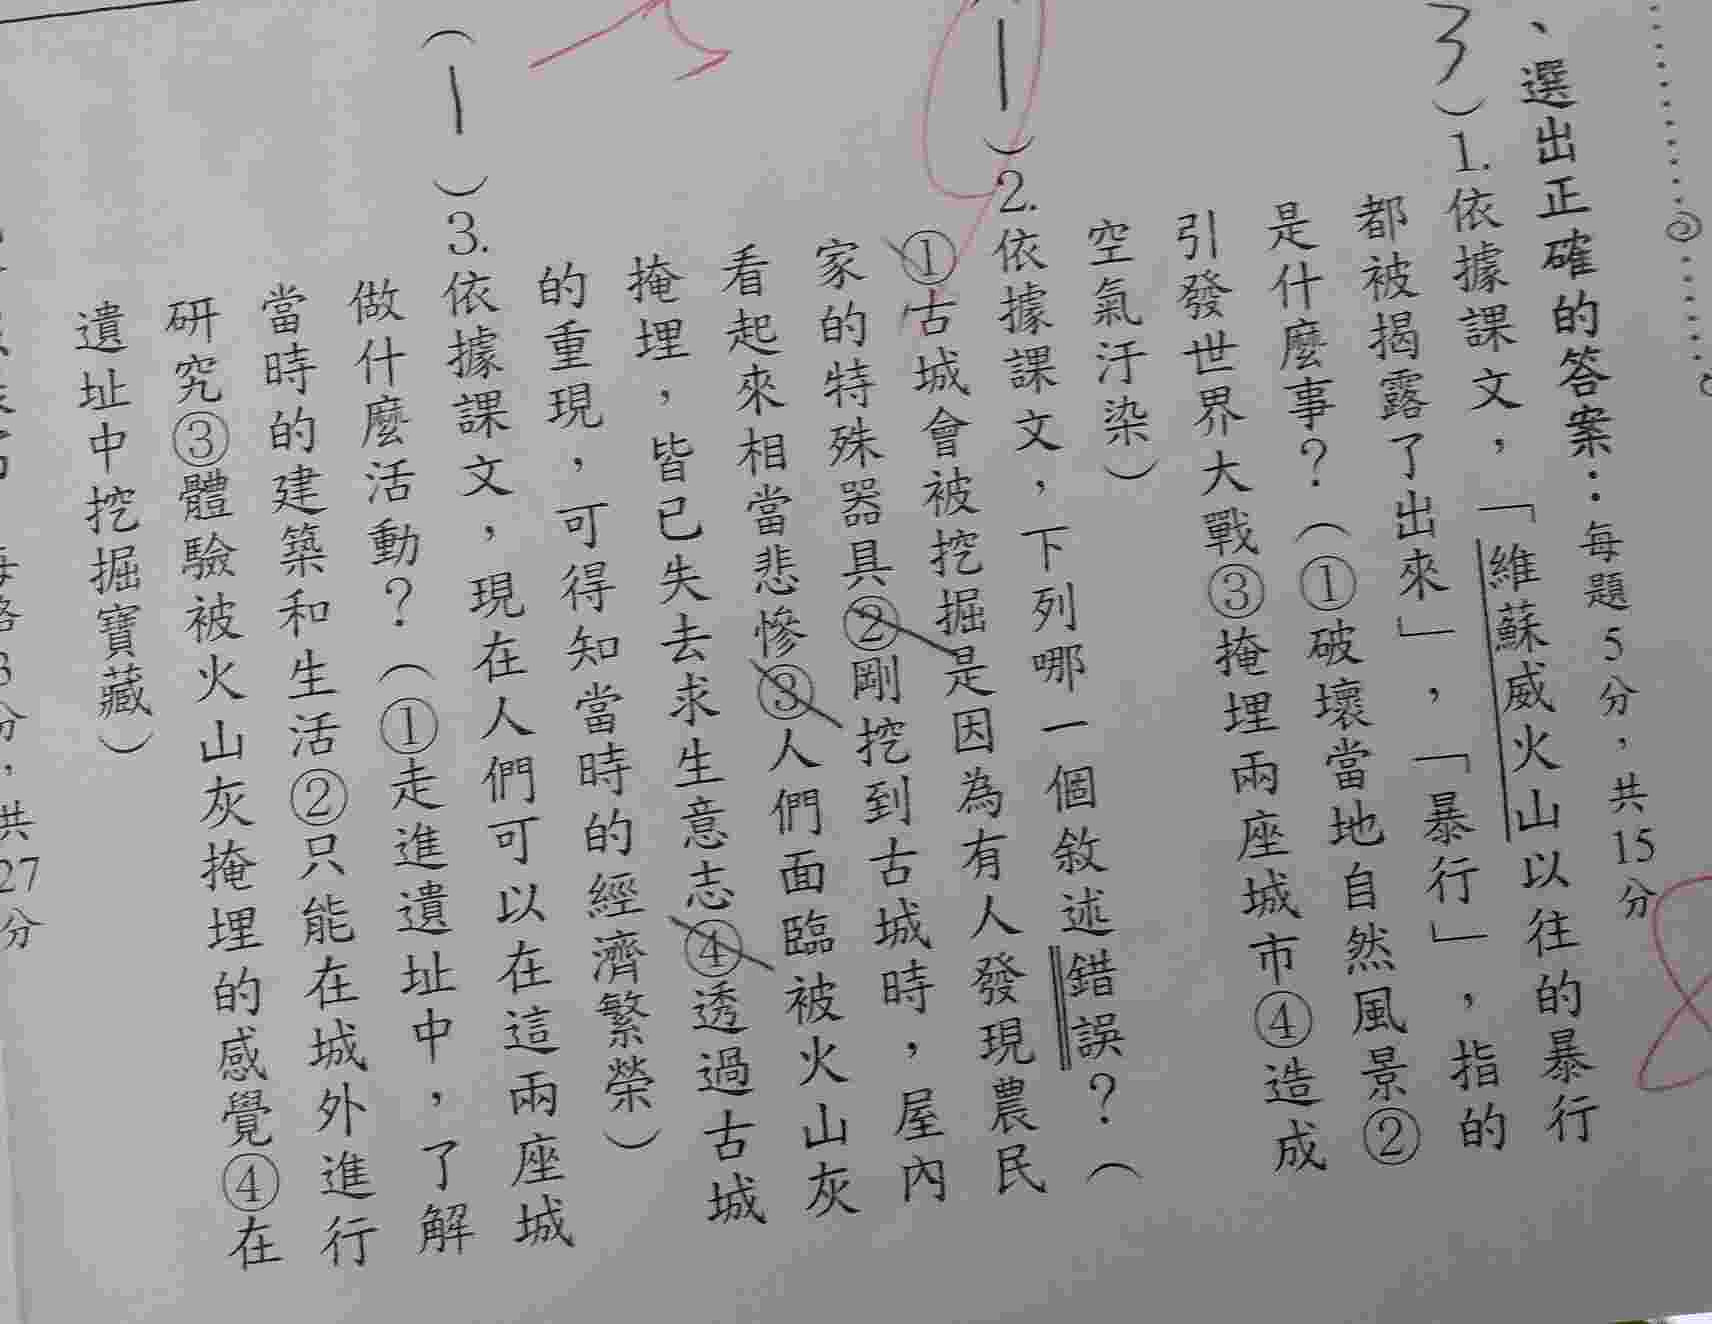 、選出正確的答案：每題5分，共15分
3）1.依據課文，「維蘇威火山以往的暴行
都被揭露了出來」，「暴行」，指的
是什麼事？（①破壞當地自然風景②
引發世界大戰③掩埋兩座城市④造成
空氣汙染）
1）2.依據課文，下列哪一個敘述錯誤？（
①古城會被挖掘是因為有人發現農民
家的特殊器具②剛挖到古城時，屋內
看起來相當悲慘③人們面臨被火山灰
掩埋，皆已失去求生意志④透過古城
的重現，可得知當時的經濟繁榮）
（1）3.依據課文，現在人們可以在這兩座城
做什麼活動？（①走進遺址中，了解
當時的建築和生活②只能在城外進行
研究③體驗被火山灰掩埋的感覺④在
遺址中挖掘寶藏）
分，共27分
8